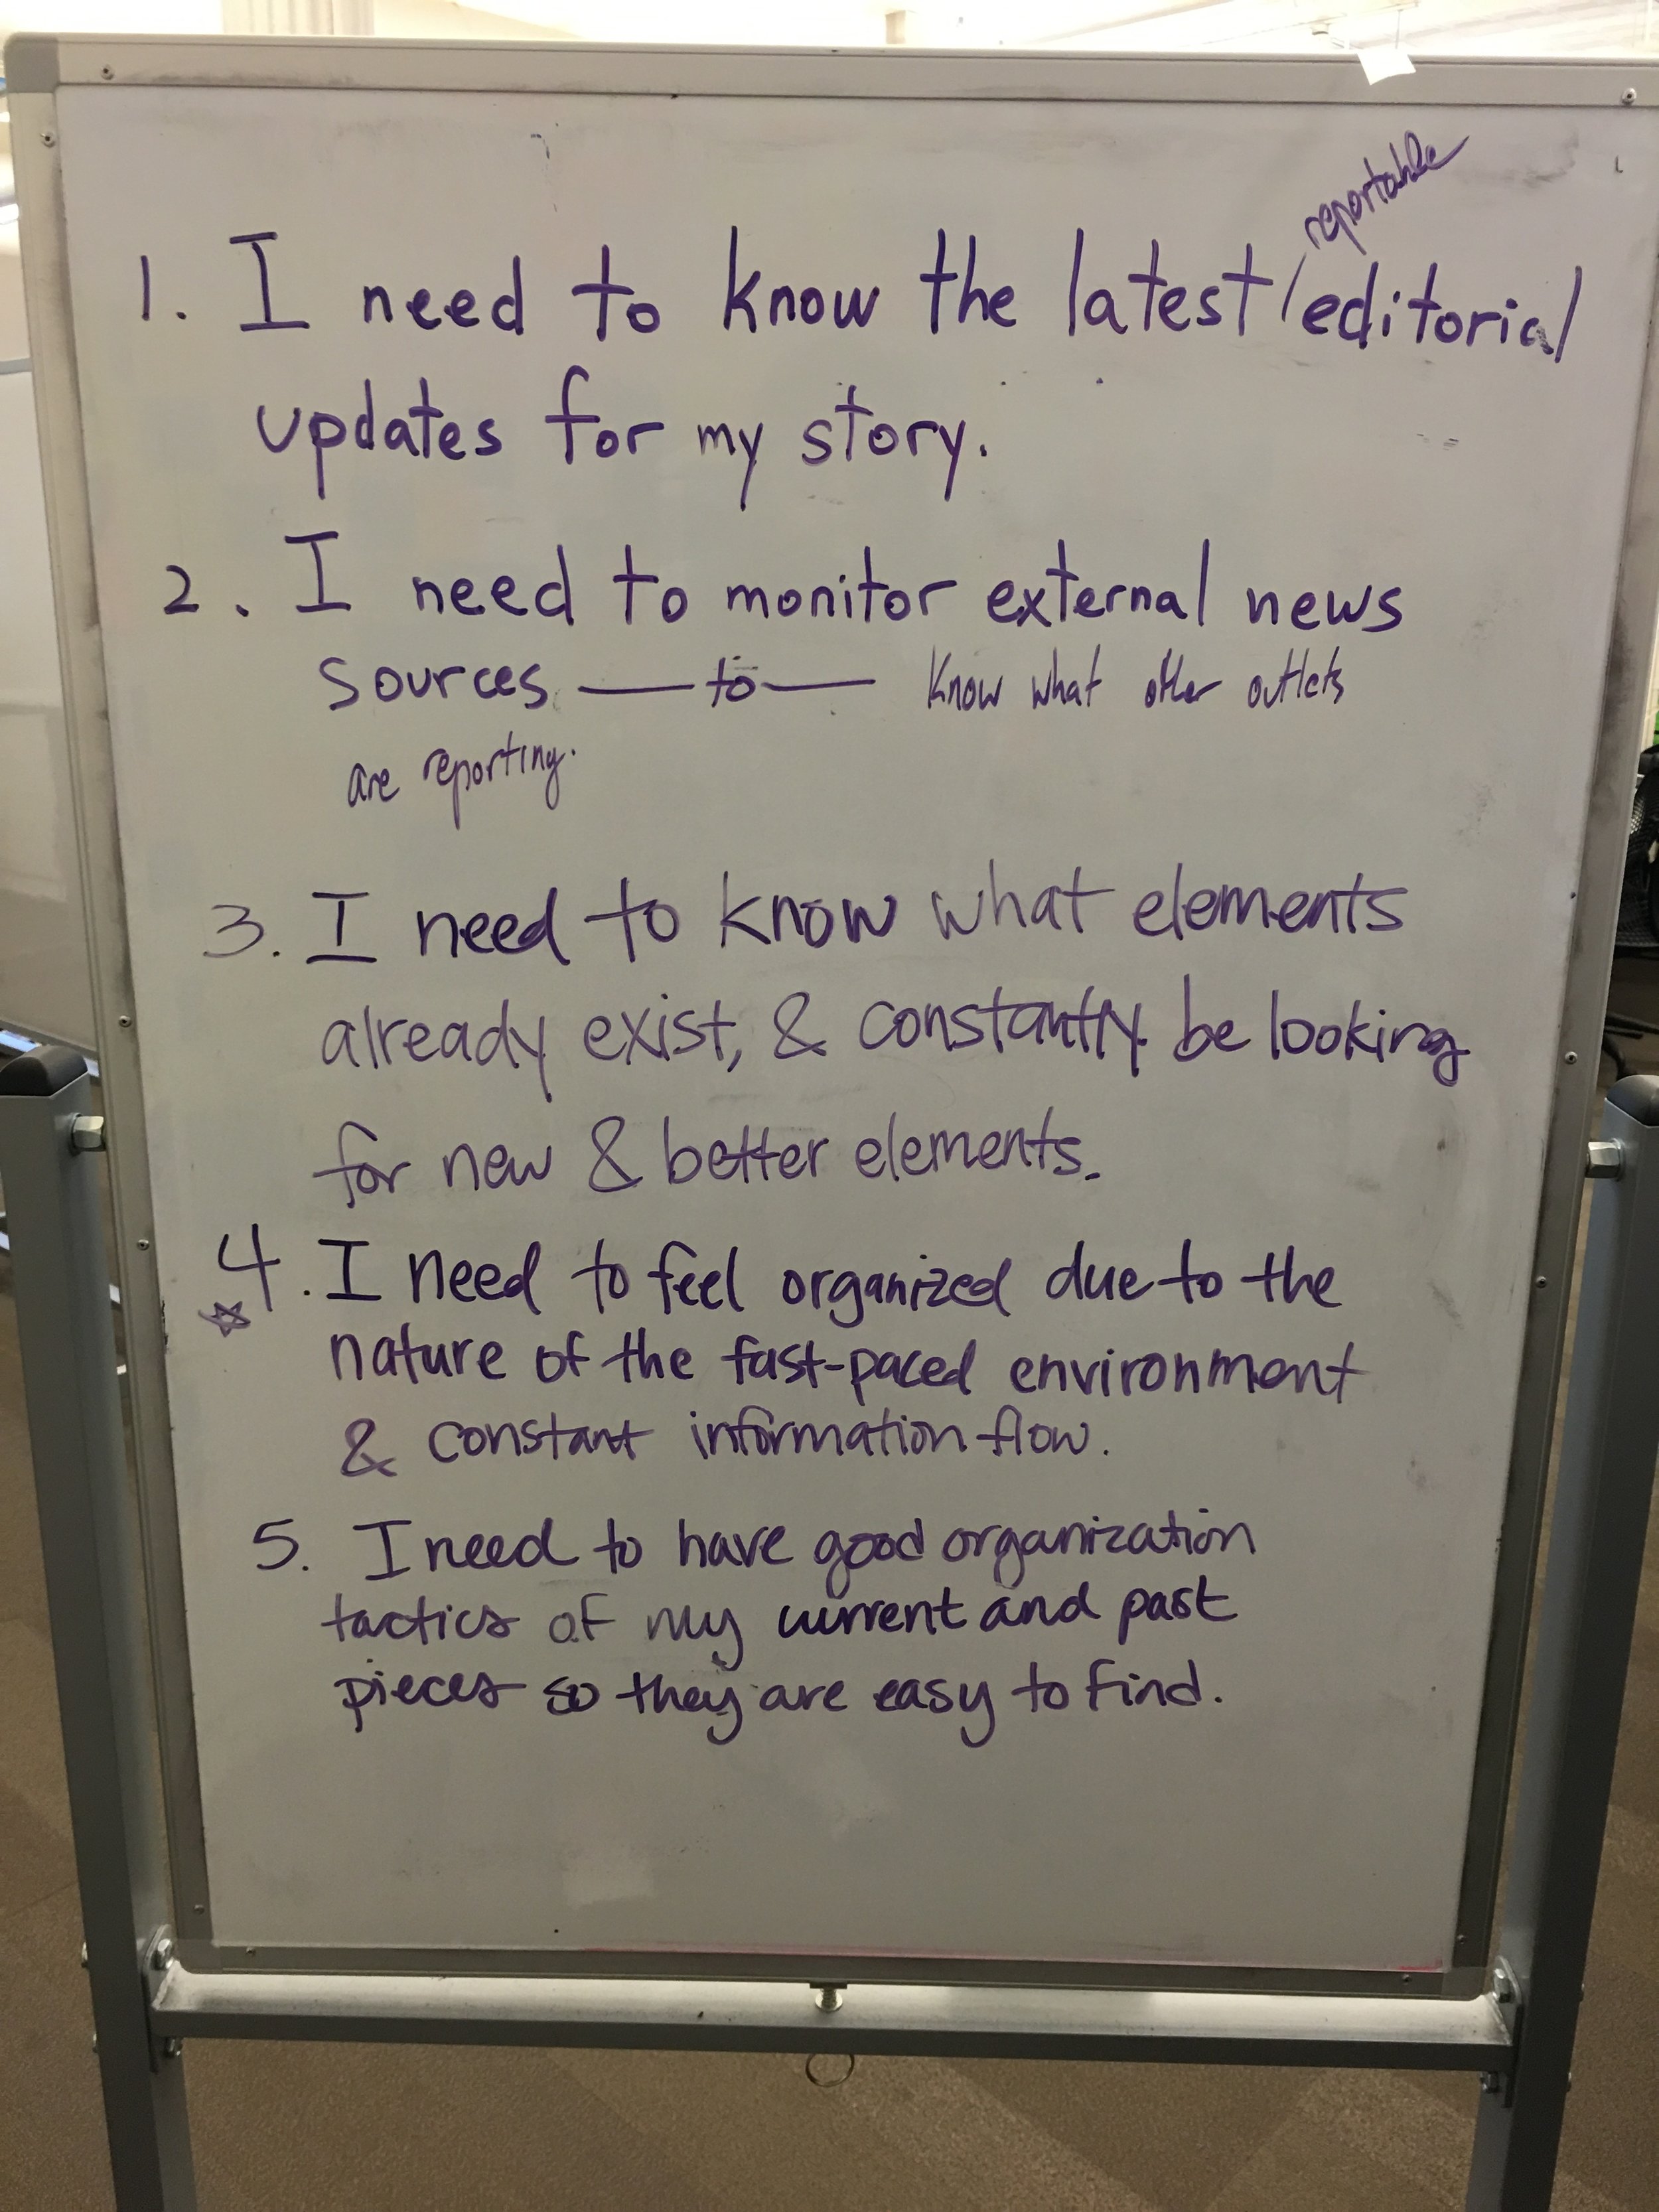 reportable
1. I need to know the latest/editorial
updates for my story.
2. I need to monitor external news
sources — to — know what other outlets
are reporting.
3. I need to know what elements
already exist, & constantly be looking
for new & better elements.
4. I need to feel organized due to the
nature of the fast-paced environment
& constant information flow.
5. I need to have good organization
tactics of my current and past
pieces so they are easy to find.